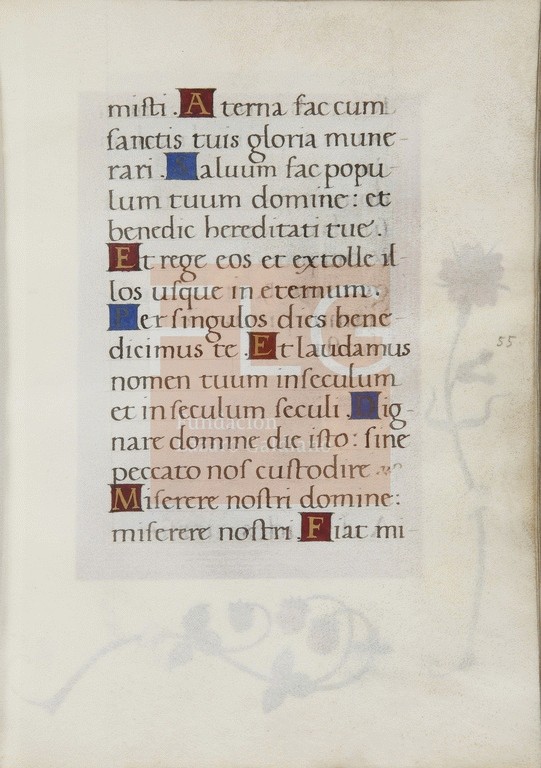 misti. Aterna fac cum
sanctis tuis gloria mune-
rari. Saluum fac popu-
lum tuum domine: et
benedic hereditati tue.
Et rege eos et extolle il-
los usque in eternum.
Per singulos dies bene-
dicimus te. Et laudamus
nomen tuum inseculum
et in seculum seculi. Dig-
nare domine die isto: sine
peccato nos custodire
Miserere nostri domine:
miserere nostri. Fiat mi-
55
FLG
Fundación